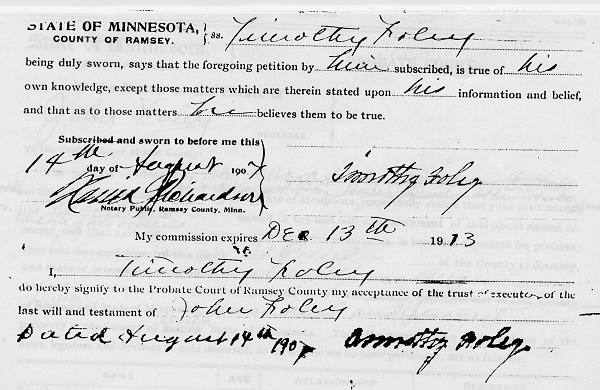 STATE OF MINNESOTA,
COUNTY OF RAMSEY. } ss. Timothy Foley
being duly sworn, says that the foregoing petition by him subscribed, is true of his
own knowledge, except those matters which are therein stated upon his information and belief,
and that as to those matters he believes them to be true.
Subscribed and sworn to before me this
14th day of August 1907
Timothy Foley
Richardson
Notary Public, Ramsey County, Minn.
My commission expires Dec 13th 1913
I, Timothy Foley
do hereby signify to the Probate Court of Ramsey County my acceptance of the trust of executor of the
last will and testament of John Foley
Dated August 14th 1907 Timothy Foley